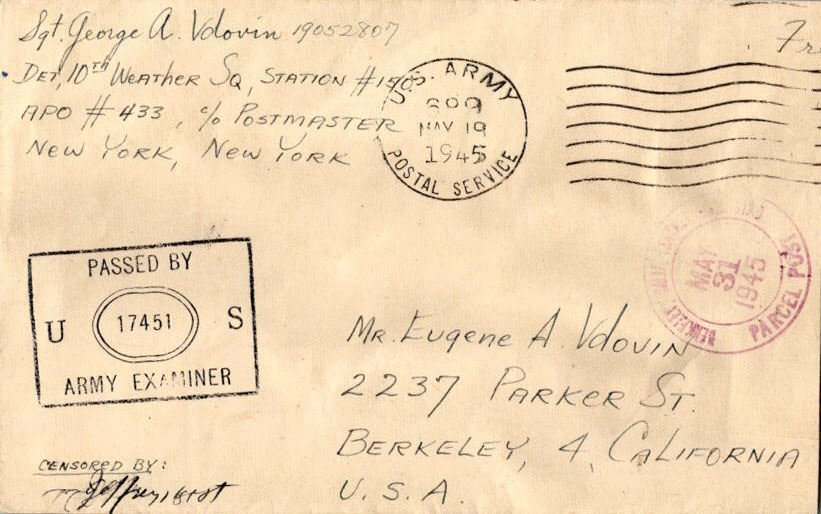 Sgt. George A. Vdovin 19052807
Det, 10th Weather Sq, Station #15
APO # 433, c/o Postmaster
New York, New York
U.S. ARMY
MAY 19
1945
POSTAL SERVICE
PASSED BY
U 17451 S
ARMY EXAMINER
BERKELEY
MAY
31
1945
PARCEL POST
Mr. Eugene A. Vdovin
2237 Parker St.
Berkeley, 4, California
U.S.A.
CENSORED BY: